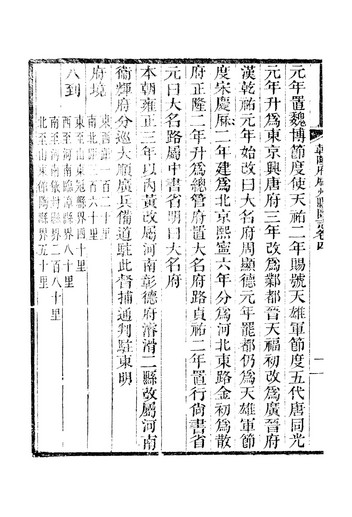 元年置魏博節度使天祐二年賜號天雄軍節度五代唐同光
元年升爲東京興唐府三年改爲鄴都晉天福初改爲廣晉府
漢乾祐元年始改曰大名府周顯德元年罷都仍爲天雄軍節
度宋慶厯二年建爲北京熙寧六年分爲河北東路金初爲散
府正隆二年升爲總管府置大名府路貞祐二年置行尙書省
元曰大名路屬中書省明曰大名府
本朝雍正三年以内黃改屬河南彰德府濬滑二縣改屬河南
衞輝府分巡大順廣兵備道駐此督捕通判駐東明
府境
東西距一百二十里
南北距三百六十里
八到
東至山東冠縣界四十里
西至河南臨漳縣界八十里
南至河南儀封縣界二百八十里
北至山東邱縣界八十里